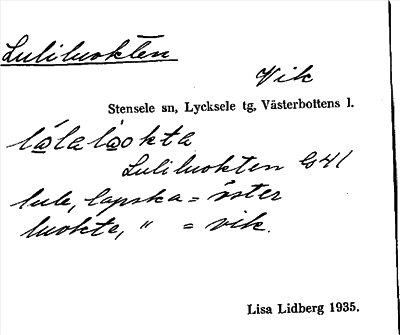 Luliluokten
Vik
Stensele sn, Lycksele tg, Västerbottens l.
lúlalùokta
Luliluokten G41
lule, lapska = öster
luokte, " = vik.
Lisa Lidberg 1935.